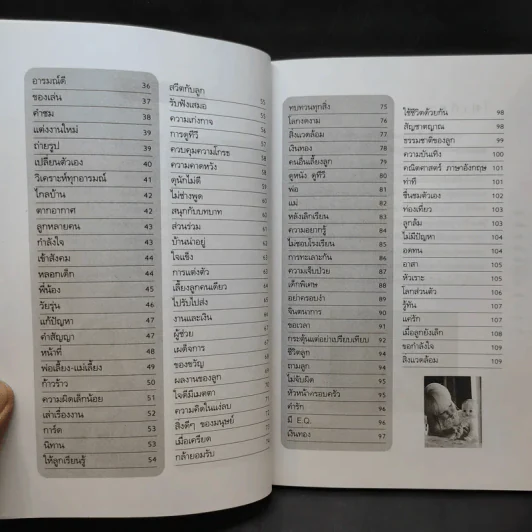 อารมณ์ดี 36
ของเล่น 37
คำชม 38
แต่งงานใหม่ 39
ถ่ายรูป 39
เปลี่ยนตัวเอง 40
วิเคราะห์ทุกอารมณ์ 41
ไกลบ้าน 42
ตากอากาศ 42
ลูกหลายคน 43
กำลังใจ 43
เข้าสังคม 44
หลอกเด็ก 44
พี่น้อง 45
วัยรุ่น 46
แก้ปัญหา 47
คำสัญญา 47
หน้าที่ 48
พ่อเลี้ยง-แม่เลี้ยง 49
ก้าวร้าว 50
ความผิดเล็กน้อย 51
เล่าเรื่องงาน 52
การ์ด 53
นิทาน 53
ให้ลูกเรียนรู้ 54
สวีตกับลูก
รับฟังเสมอ 55
ความเก่งกาจ
การดูทีวี
ควบคุมความโกรธ
ความคาดหวัง
ดุนักไม่ดี
ไม่ช่างพูด
สนุกกับบทบาท
ส่วนร่วม
บ้านน่าอยู่
ใจแข็ง
การแต่งตัว
เลี้ยงลูกคนเดียว
ไปรับไปส่ง
งานและเงิน
ผู้ช่วย
เผด็จการ
ของขวัญ
ผลงานของลูก
ใจดีมีเมตตา
ความคิดในแง่ลบ
สิ่งดีๆ ของมนุษย์
เมื่อเครียด
กล้ายอมรับ
ทบทวนทุกสิ่ง 75
โลกงดงาม 76
สิ่งแวดล้อม 77
เงินทอง 78
คนอื่นเลี้ยงลูก 79
ดูหนัง ดูทีวี 80
พ่อ 81
แม่ 82
หลังเลิกเรียน 83
ความอยากรู้ 84
ไม่ชอบโรงเรียน 85
การทะเลาะกัน 86
ความเจ็บป่วย 87
เด็กพิเศษ 88
อย่าครอบงำ 89
จินตนาการ 90
ขอเวลา 91
กระตุ้นแต่อย่าเปรียบเทียบ 92
ชีวิตลูก 93
ถามลูก 94
ไม่จับผิด 94
หัวหน้าครอบครัว 95
คำรัก 96
มี E.Q. 96
เงินทอง 97
ใช้ชีวิตด้วยกัน 98
สัญชาตญาณ 98
ธรรมชาติของลูก 99
ความบันเทิง 100
คณิตศาสตร์ ภาษาอังกฤษ 101
ท่าที 101
ชื่นชมตัวเอง 102
ท่องเที่ยว 103
ลูกล้ม 103
ไม่มีปัญหา 104
อดทน 104
อาสา 105
หัวเราะ 105
โลกส่วนตัว 106
รู้ทัน 107
แค่รัก 107
เมื่อลูกยังเล็ก 108
ขอกำลังใจ 109
สิ่งแวดล้อม 109